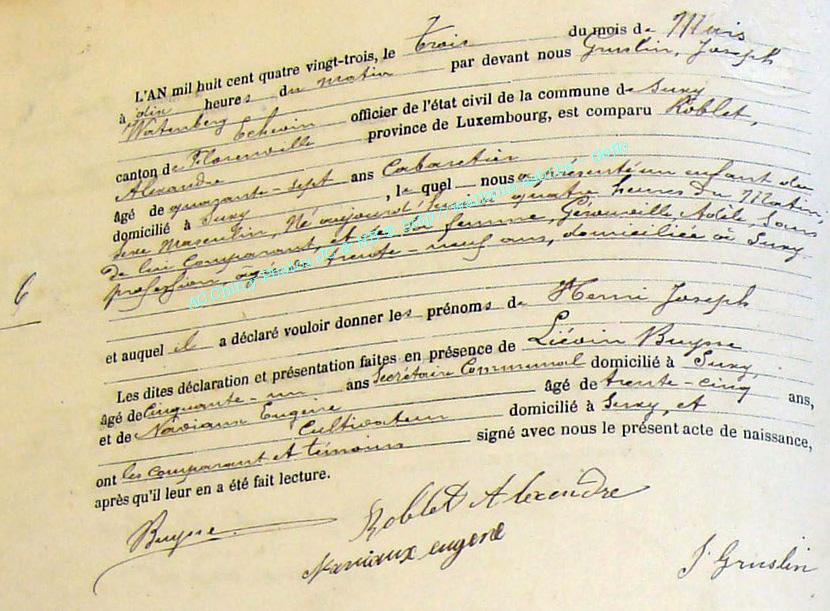 L'AN mil huit cent quatre vingt-trois, le trois du mois de Mars
à dix heures du matin par devant nous Gruslin, Joseph
Watenberg Echevin officier de l'état civil de la commune de Suxy
canton de Florenville province de Luxembourg, est comparu Roblet,
Alexandre
âgé de quarante-sept ans Cabaretier
domicilié à Suxy, le quel nous a présenté un enfant du
sexe Masculin, Né aujourd'hui à quatre heures du Matin,
de lui Comparant, et de sa femme, Gérouville, Adèle, Sans
profession, agée de trente-neuf ans, domiciliée à Suxy
6
et auquel il a déclaré vouloir donner les prénoms de Henri Joseph
Les dites déclaration et présentation faites en présence de Liévin Buysse
âgé de Cinquante-un ans Secrétaire Communal domicilié à Suxy,
et de Naviaux Eugène âgé de trente-cinq ans,
Cultivateur domicilié à Suxy, et
ont les comparant et témoins signé avec nous le présent acte de naissance,
après qu'il leur en a été fait lecture.
Buysse
Roblet Alexendre
Naviaux eugene
J. Gruslin